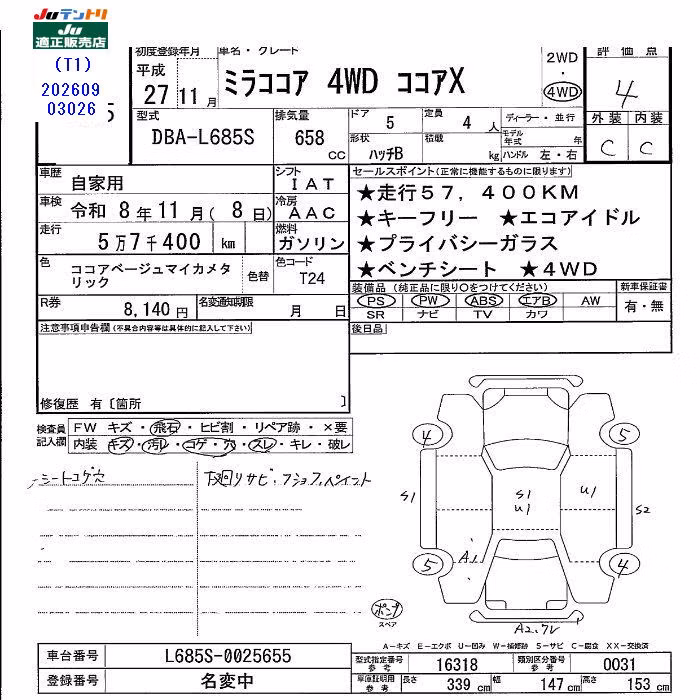 JUテントリ
JU
適正販売店
(T1)
202609
03026
5
初度登録年月
平成
27 11 月
車名・グレード
ミラココア 4WD ココアX
2WD
・
4WD
評価点
4
外装 内装
C C
型式
DBA-L685S
排気量
658
CC
ドア 5 定員 4 人
形状 ハッチB 積載 kg
ディーラー・並行
モデル年式 年
ハンドル 左・右
車歴 自家用
シフト IAT
車検 令和 8年11月( 8日)
冷房 AAC
走行 5万7千400 km
燃料 ガソリン
色 ココアベージュマイカメタリック
色替
色コード T24
R券 8,140円
名変通知期限 月 日
セールスポイント(正常に機能するものに限ります)
★走行57,400KM
★キーフリー ★エコアイドル
★プライバシーガラス
★ベンチシート ★4WD
装備品(純正品に限り○をつけてください)
PS PW ABS エアB AW
SR ナビ TV カワ
新車保証書
有・無
後日品
注意事項申告欄(不具合内容等は具体的に記入して下さい)
修復歴 有〔箇所 〕
検査員記入欄
FW キズ・飛石・ヒビ割・リペア跡・×要
内装 キズ・汚レ・コゲ・穴・スレ・キレ・破レ
シートコゲ穴
下回リサビ・フショク、ペイント
4 5
S1 S1 U1 U1 S2
A1
5 4
ポンプ
スペア
A2,フレ
A-キズ E-エクボ U-凹み W-補修跡 S-サビ C-腐食 XX-交換済
車台番号 L685S-0025655
登録番号 名変中
型式指定番号 参考 16318 類別区分番号 参考 0031
車庫証明用 参考 長さ 339 cm 幅 147 cm 高さ 153 cm